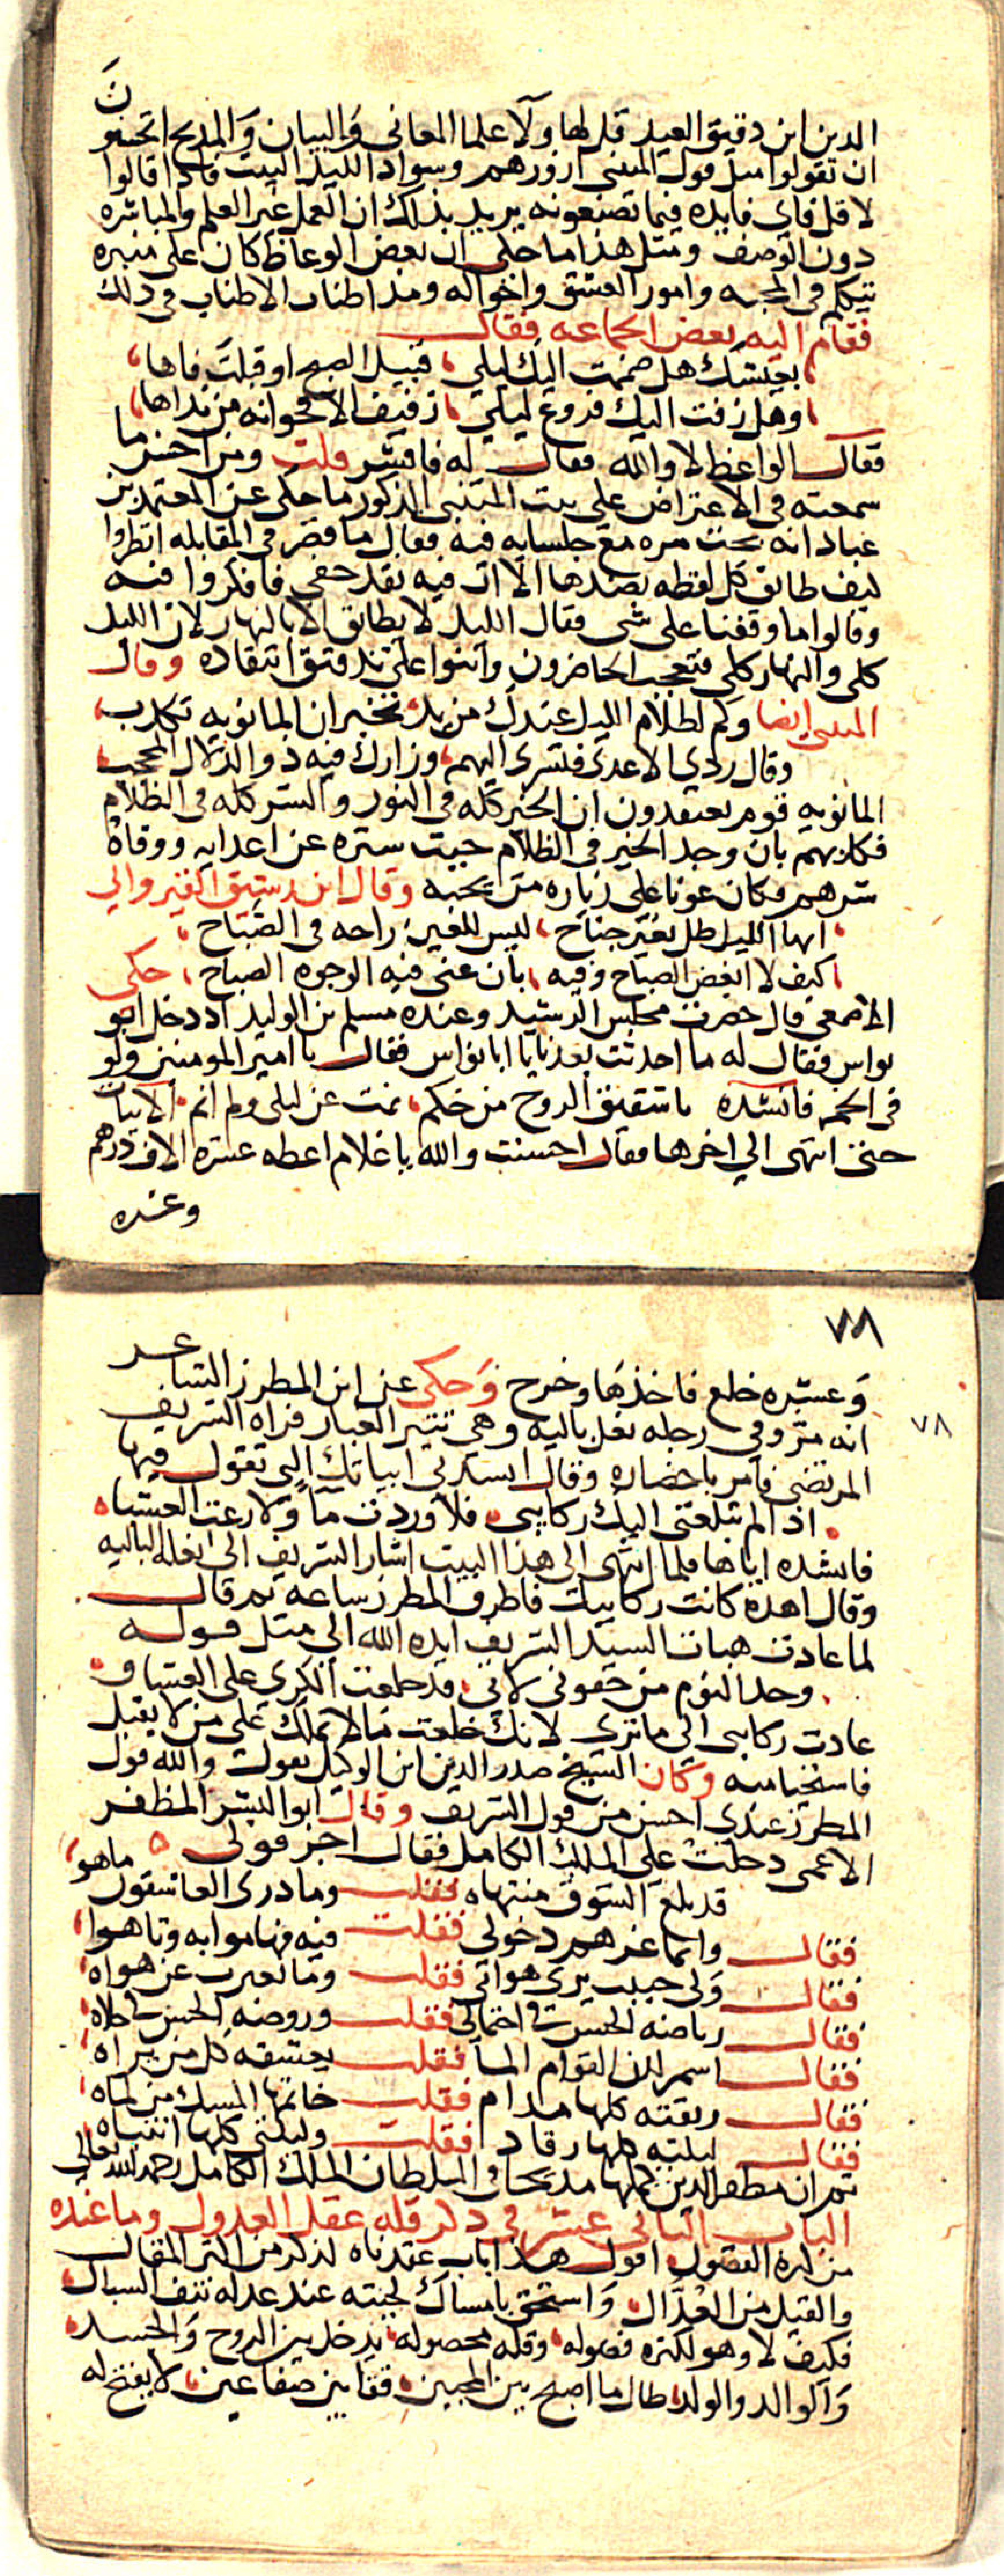 الدين ابن دقيق العيد قل لها ولا علما المعاني والبيان والبديع اتحسنون
ان تقولوا مثل قول المتنبي ازورهم وسواد الليل البيت فاذا قالوا
لا قل فاي فايده فيما تصنعونه يريد بذلك ان العمل غير العلم والمباشره
دون الوصف ومثل هذا ما حكى ان بعض الوعاظ كان على منبره
يتكلم في المحبه وامور العشق واحواله ومد اطناب الاطناب في ذلك
فقام اليه بعض الجماعه فقال
بعيشك هل ضممت اليك ليلى قبيل الصبح او قبلت فاها
وهل زفت اليك فروع ليلى زفيف الاقحوانه من نداها
فقال الواعظ لا والله فقال له فافشر قلت ومن احسن ما
سمعته في الاعتراض على بيت المتنبي المذكور ما حكى عن المعتمد بن
عباد انه بحث مره مع جلسايه فيه فقال ما قصر في المقابله انظروا
كيف طابق كل لفظه بضدها الا ان فيه نقد خفي فافكروا فيه
وقالوا ما وقفنا على شي فقال الليل لا يطابق الا بالنهار لان الليل
كلي والنهار كلي فتعجب الحاضرون واثنوا على تدقيق انتقاده وقال
المتنبي ايضا وكم لظلام الليل عندك من يد تخبر ان المانويه تكذب
وقاك ردى الاعدى فتسري اليهم وزارك فيه ذو الدلال المحجب
المانويه قوم يعتقدون ان الخير كله في النور والشر كله في الظلام
فكذبهم بان وجد الخير في الظلام حيث ستره عن اعدايه ووقاه
شرهم فكان عونا على زياره من يحبه وقال ابن رشيق القيرواني
ايها الليل طل بغير جناح ليس للعين راحه في الصباح
كيف لا ابغض الصباح وفيه بان عني فيه الوجوه الصباح حكى
الاصمعي قال حضرت مجلس الرشيد وعنده مسلم بن الوليد اذ دخل ابو
نواس فقال له ما احدثت بعدنا يا ابا نواس فقال يا امير المومنين ولو
في الخمر فانشده يا شقيق الروح من حكم نمت عن ليلى ولم انم الابيات
حتى انتهى الى اخرها فقال احسنت والله يا غلام اعطه عشره الاف درهم
وعشره
٧٨
وعشره خلع فاخذها وخرج وحكى عن ابن المطرز الشاعر
٧٨
انه مر وفي رجله نعل باليه وهي تثير الغبار فراه الشريف
المرتضى فامر باحضاره وقال انشدني ابياتك التي تقول فيها
اذا لم تبلغني اليك ركايبي فلا وردت ما ولا رعت العشبا
فانشده اياها فلما انتهى الى هذا البيت اشار الشريف الى نعله الباليه
وقال اهذه كانت ركايبك فاطرق المطرز ساعه ثم قال
لما عادت هبات السيد الشريف ايده الله الى مثل قوله
وخذ النوم من جفوني لاني قد خلعت الكرى على العشاق
عادت ركايبي الى ما ترى لانك خلعت ما لا تملك على من لا يقبل
فاستحيا منه وكان الشيخ صدر الدين ابن الوكيل يقول والله قول
المطرز عندي احسن من قول الشريف وقال ابو البشر المظفر
الاعمى دخلت على الملك الكامل فقال اجز قولي
قد بلغ الشوق منتهاه فقلت وما درى العاشقون ما هو
فقال وانما غرهم دخولي فقلت فيه فهاموا به وتاهوا
فقال ولي حبيب يرى هواني فقلت وما تغيرت عن هواه
فقال رياضه الحسن في احتمالي فقلت وروضه الحسن في حلاه
فقال اسمر لدن القوام المى فقلت يعشقه كل من يراه
فقال ريقته كلها مدام فقلت ختامها المسك من لماه
فقال ليلته كلها رقاد فقلت وليلتي كلها انتباه
ثم ان مظفر الدين كملها مديحا في السلطان الملك الكامل رحمه الله تعالى
الباب الثاني عشر في ذكر قله عقل العذول وما عنده
من كثره الفضول اقول هذا باب عقدناه لذكر من اكثر المقال
والقيل من العذال واستحق بامساك لحيته عند عدله نتف السبال
فكيف لا وهو لكثره فضوله وقله محصوله يدخل بين الروح والجسد
والوالد والولد طال ما اصبح بين المحبين ققا بين صفاعين لا يفتح له